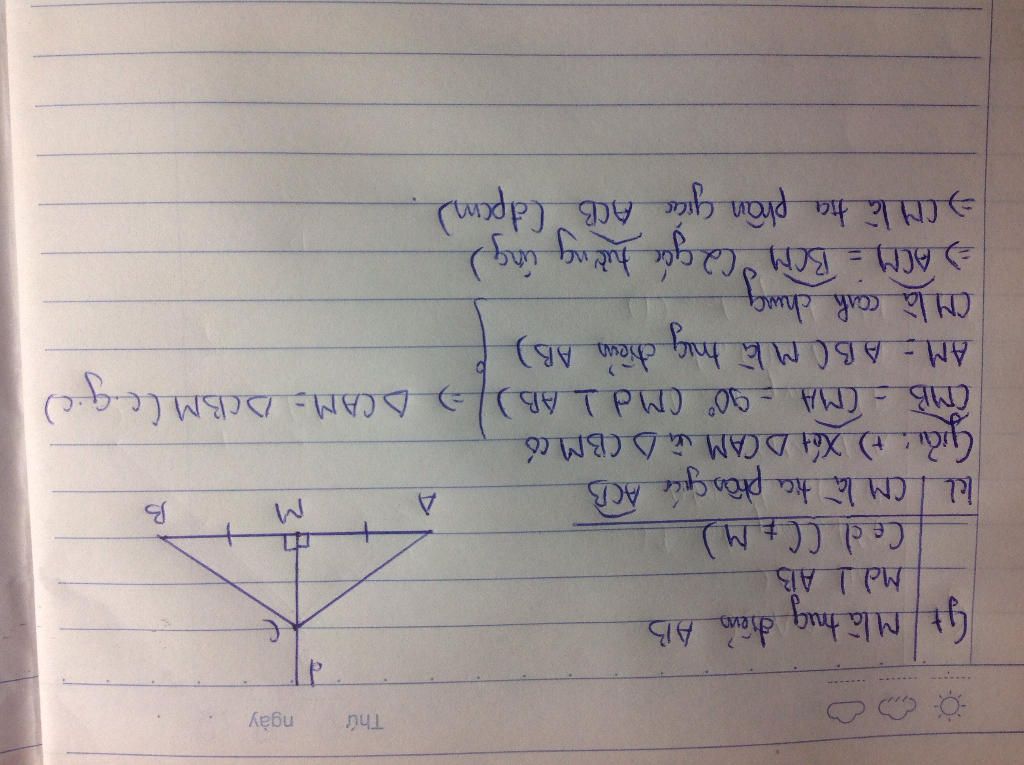 Thứ ngày
d
C
A M B
Gt M là trung điểm AB
Md ⊥ AB
C ∈ d (C ≠ M)
kl CM là tia phân giác ACB
Giải: +) Xét ΔCAM và ΔCBM có
CMB = CMA = 90° (Md ⊥ AB)
AM = AB (M là trung điểm AB)
CM là cạnh chung
⇒ ΔCAM = ΔCBM (c.g.c)
⇒ ACM = BCM (2 góc tương ứng)
⇒ CM là tia phân giác ACB (đpcm)